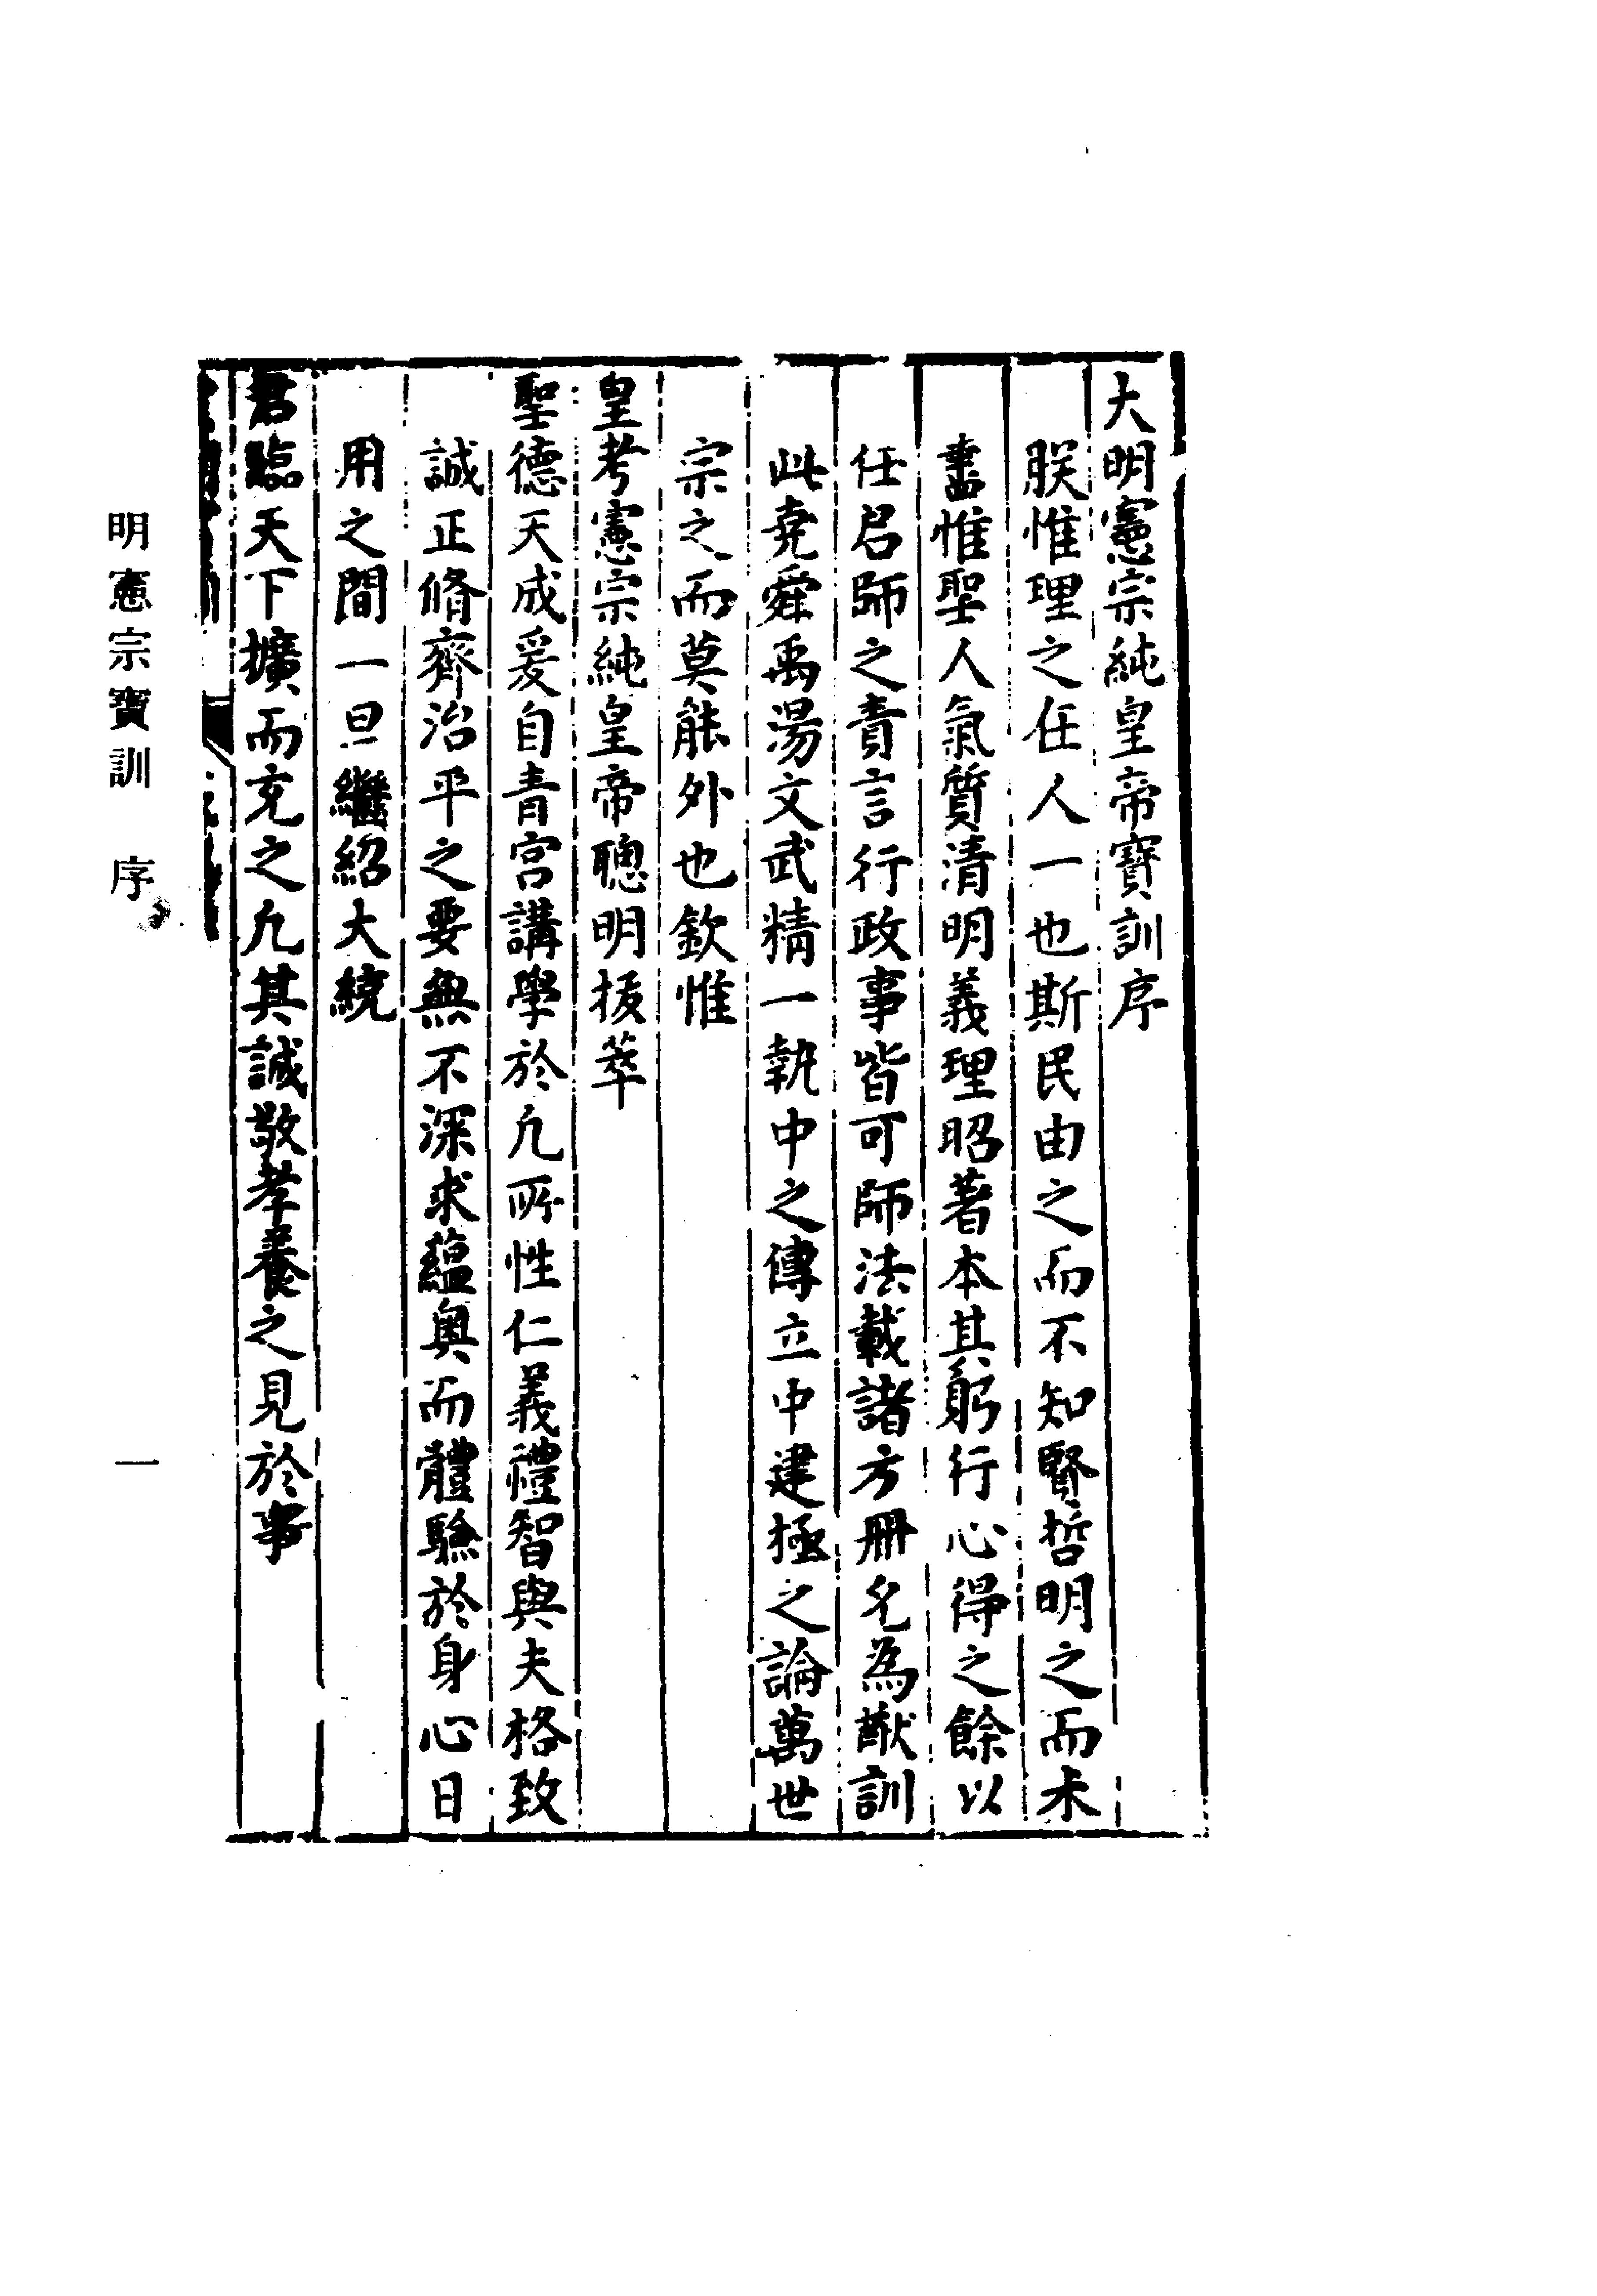 大明憲宗純皇帝寶訓序
朕惟理之在人一也斯民由之而不知賢哲明之而未
盡惟聖人氣質清明義理昭著本其躬行心得之餘以
任君師之責言行政事皆可師法載諸方冊名為猷訓
此堯舜禹湯文武精一執中之傳立中建極之論萬世
宗之而莫能外也欽惟
皇考憲宗純皇帝聰明拔萃
聖德天成爰自青宮講學於凡所性仁義禮智與夫格致
誠正脩齊治平之要無不深求蘊奧而體驗於身心日
用之間一旦繼紹大統
君臨天下擴而充之凡其誠敬孝養之見於事
明憲宗寶訓 序 一